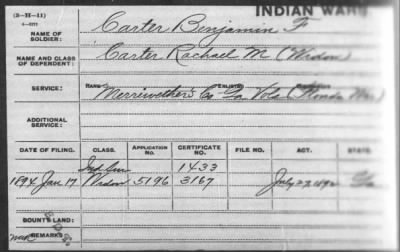 (3-H-11)
INDIAN WARS
NAME OF SOLDIER: Carter Benjamin F
NAME AND CLASS OF DEPENDENT: Carter Rachael M (Widow)
SERVICE: RANK ENLISTED
Merriwether's Co Ga Vols (Florida War)
ADDITIONAL SERVICE:
DATE OF FILING. CLASS. APPLICATION NO. CERTIFICATE NO. FILE NO. ACT. STATE.
Ind Sur 1433
1894 Jan 17 Widow 5196 3167 July 27, 1892
BOUNTY LAND:
REMARKS